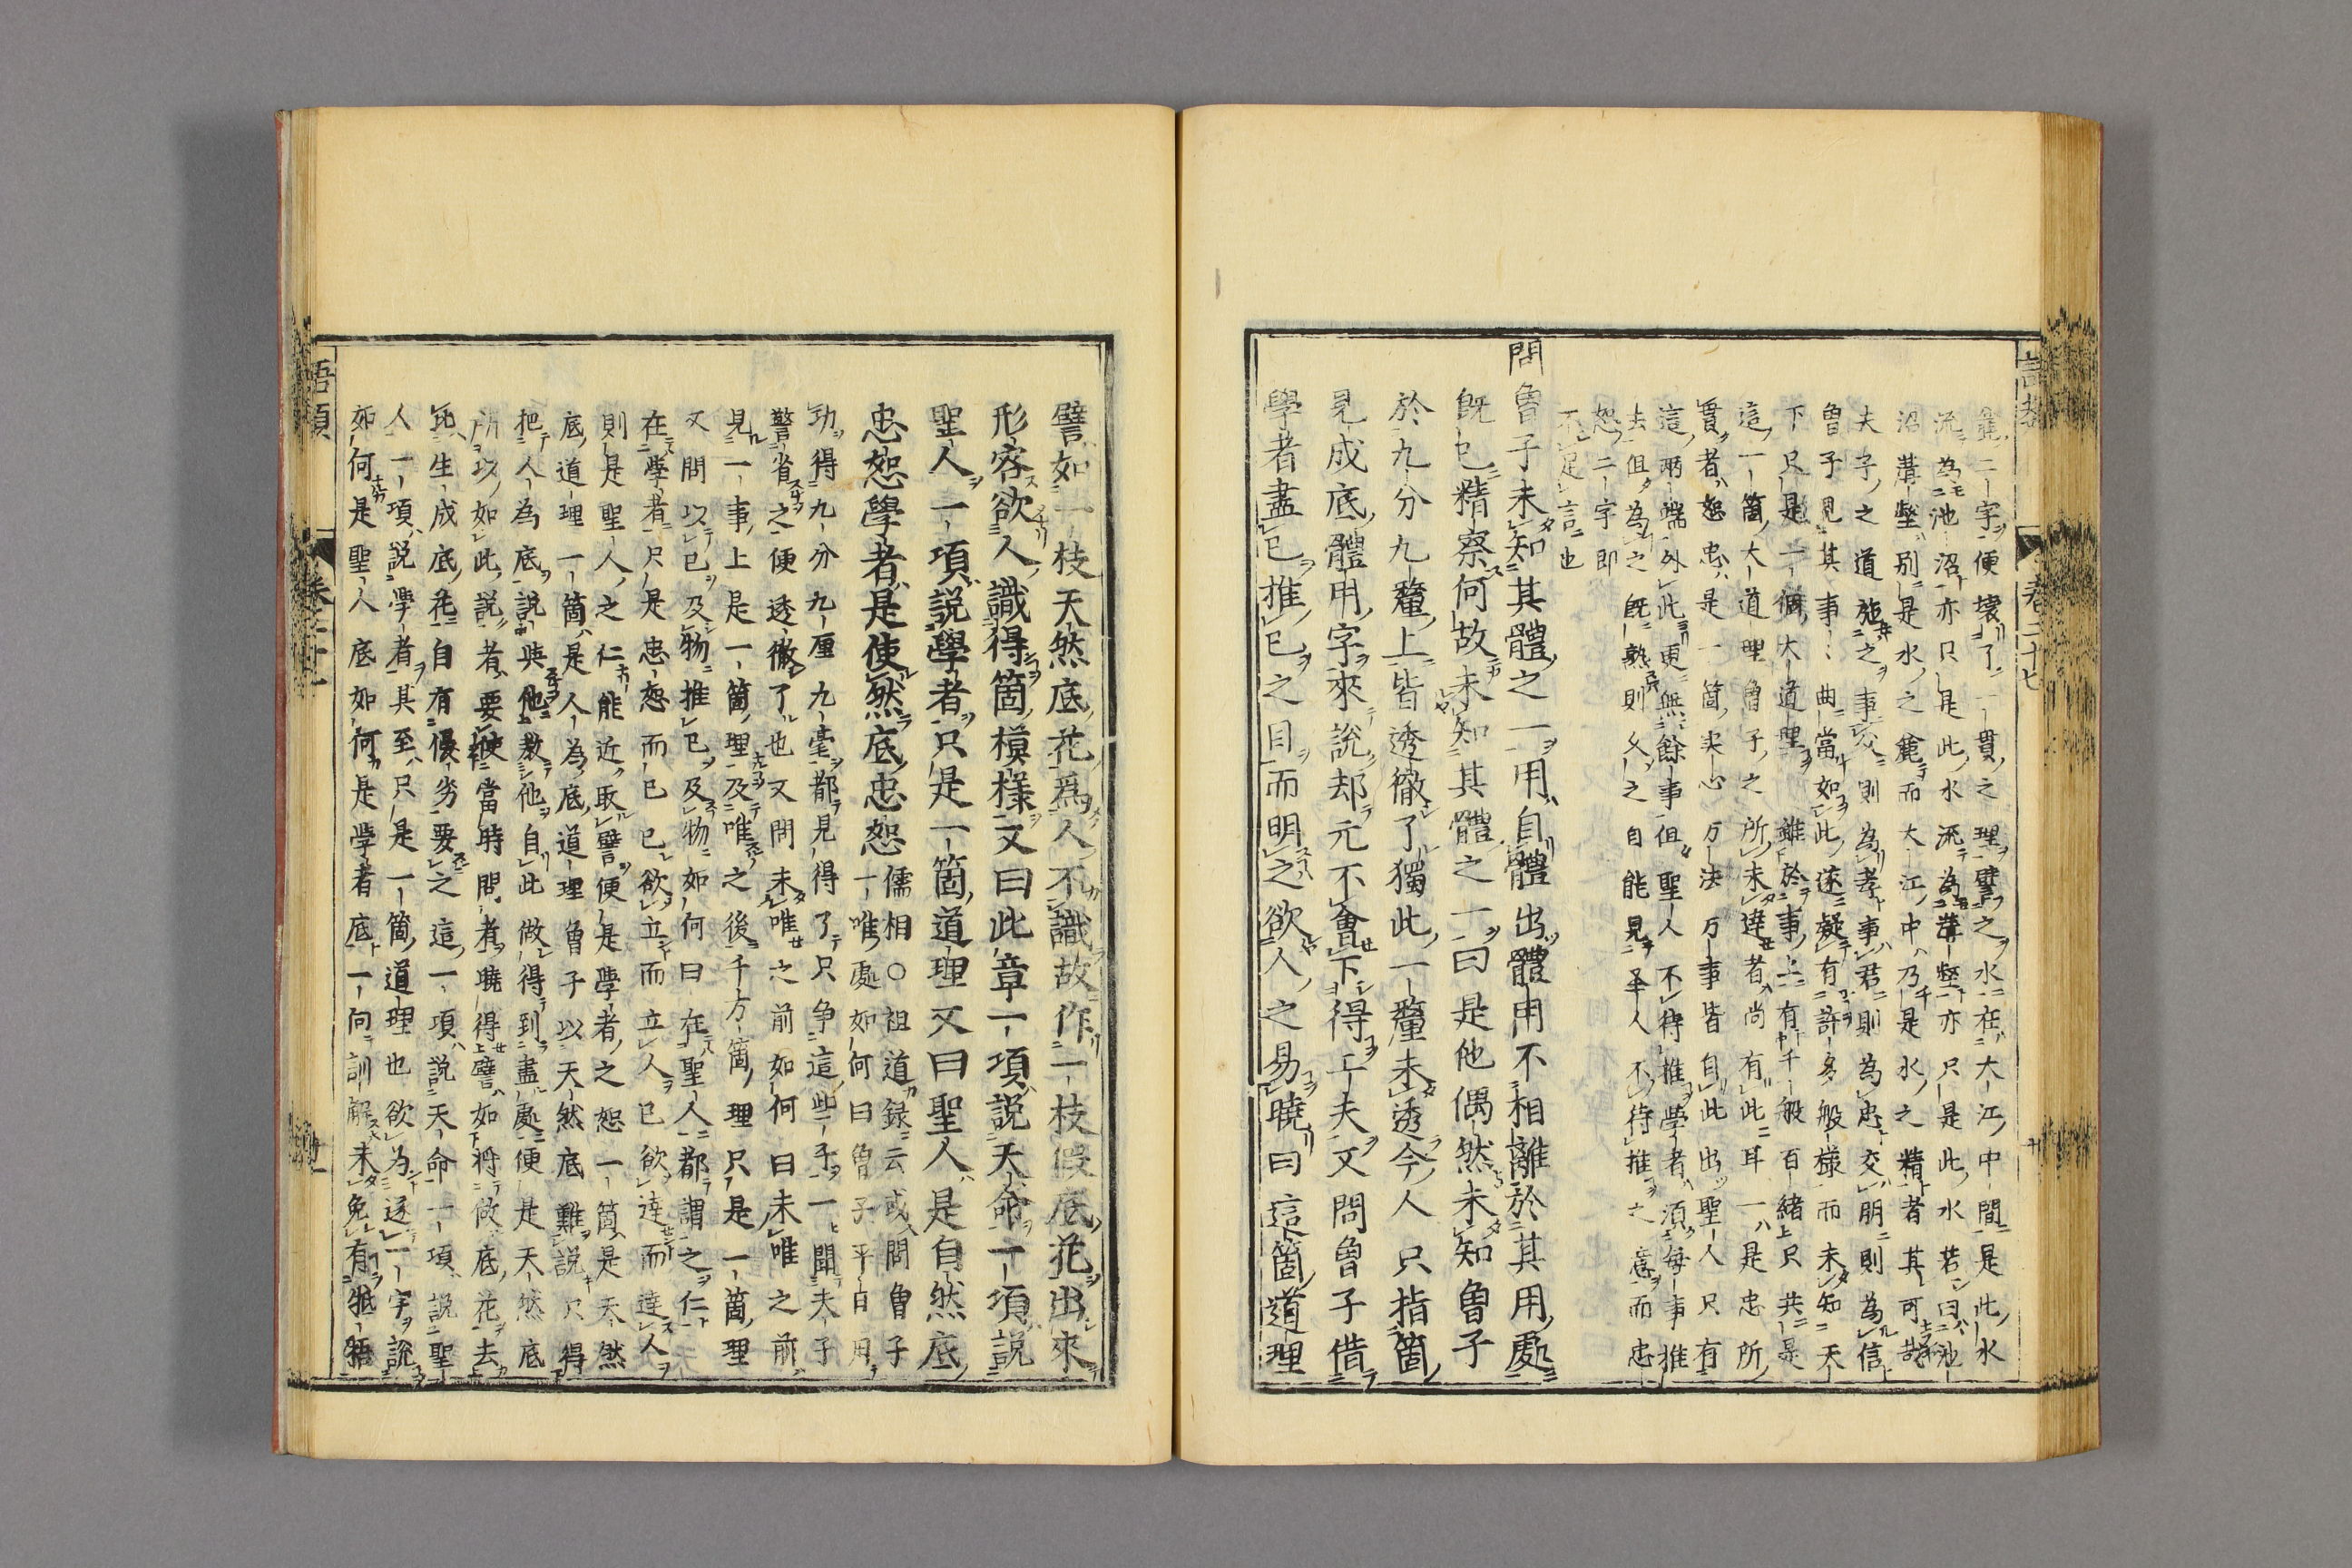 麁二字便壞了一貫之理譬之水在大江中間是此水
流為池沼亦只是此水流為溝壑亦只是此水若曰池
沼溝壑別是水之麁而大江中乃是水之精者其可哉
夫子之道施之事父則為孝事君則為忠交朋則為信
曾子見其事〻曲當如此遂疑有許多般樣而未知天
下只是一個大道理雖於事上有千般百緒只共是
這一箇大道理曾子之所未達者尚有此耳一是忠所
貫者恕忠是一箇実心万法万事皆自此出聖人只有
這兩端外此更無餘事但聖人不待推學者須每事推
去但為之既熟則久之自能見聖人不待推之意而忠
恕二字即
不足言也
問曾子未知其體之一用自體出體用不相離於其用處
既已精察何故未知其體之一曰是他偶然未知曾子
於九分九釐上皆透徹了獨此一釐未透今人只指箇
見成底體用字來說却元不會下得工夫又問曾子借
學者盡已推已之目而明之欲人之易曉曰這箇道理
譬如一枝天然底花爲人不識故作一枝假底花出來
形容欲人識得箇模樣又曰此章一項說天命一項說
聖人一項說學者只是一箇道理又曰聖人是自然底
忠恕學者是使然底忠恕儒相○祖道録云或問曾子
一唯處如何曰曾子平日用
功得九分九厘九毫都見得了只争這些子一聞夫子
警省之便透徹了也又問未唯之前如何曰未唯之前
見一事上是一箇理及唯之後千万箇理只是一箇理
又問以已及物推已及物如何曰在聖人都謂之仁
在學者只是忠恕而已已欲立而立人已欲達而達人
則是聖人之仁能近取譬便是學者之恕一箇是天然
底道理一箇是人為底道理曾子以天然底難說只得
把人為底說與他教他自此做得到盡處便是天然底
所以如此說者要使當時問者曉得譬如將做底花去
比生成底花自有優劣要之這一項說天命一項說聖
人一項說學者其至只是一箇道理也欲为逐一字說
如何是聖人底如何是學者底一向訓解未免有牴牾